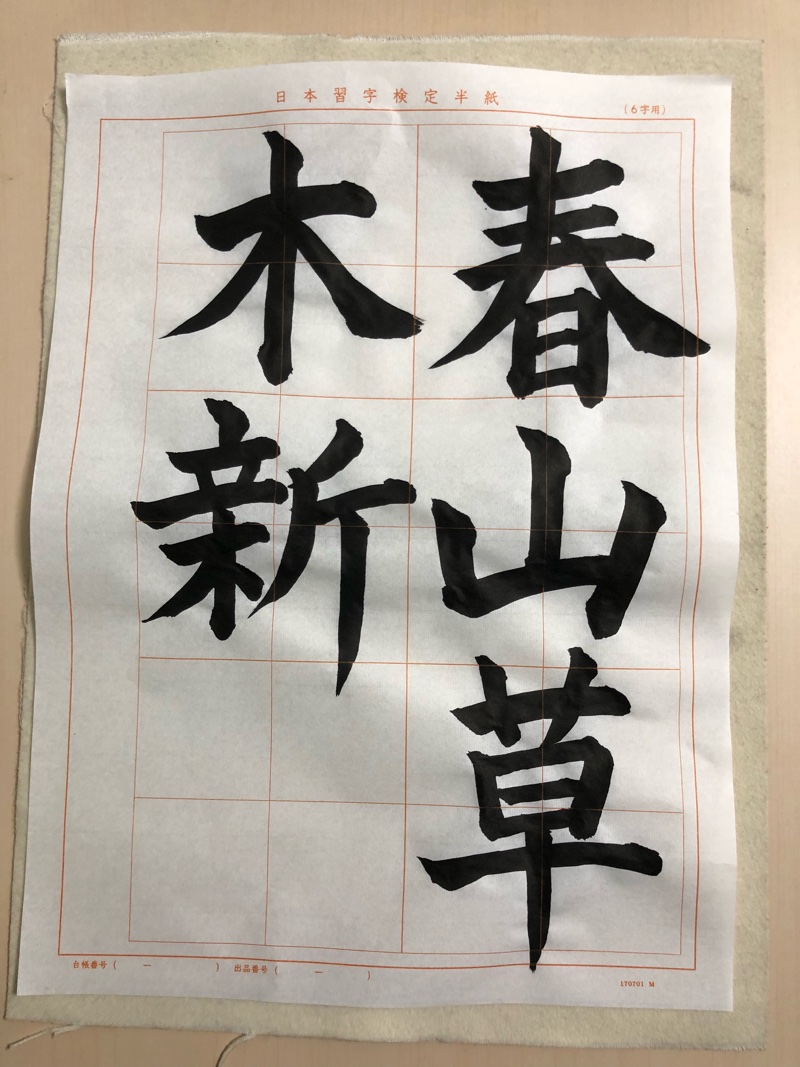 日本習字検定半紙
（6字用）
春山草
木新
台帳番号（　ー　）　出品番号（　ー　）
170701 M